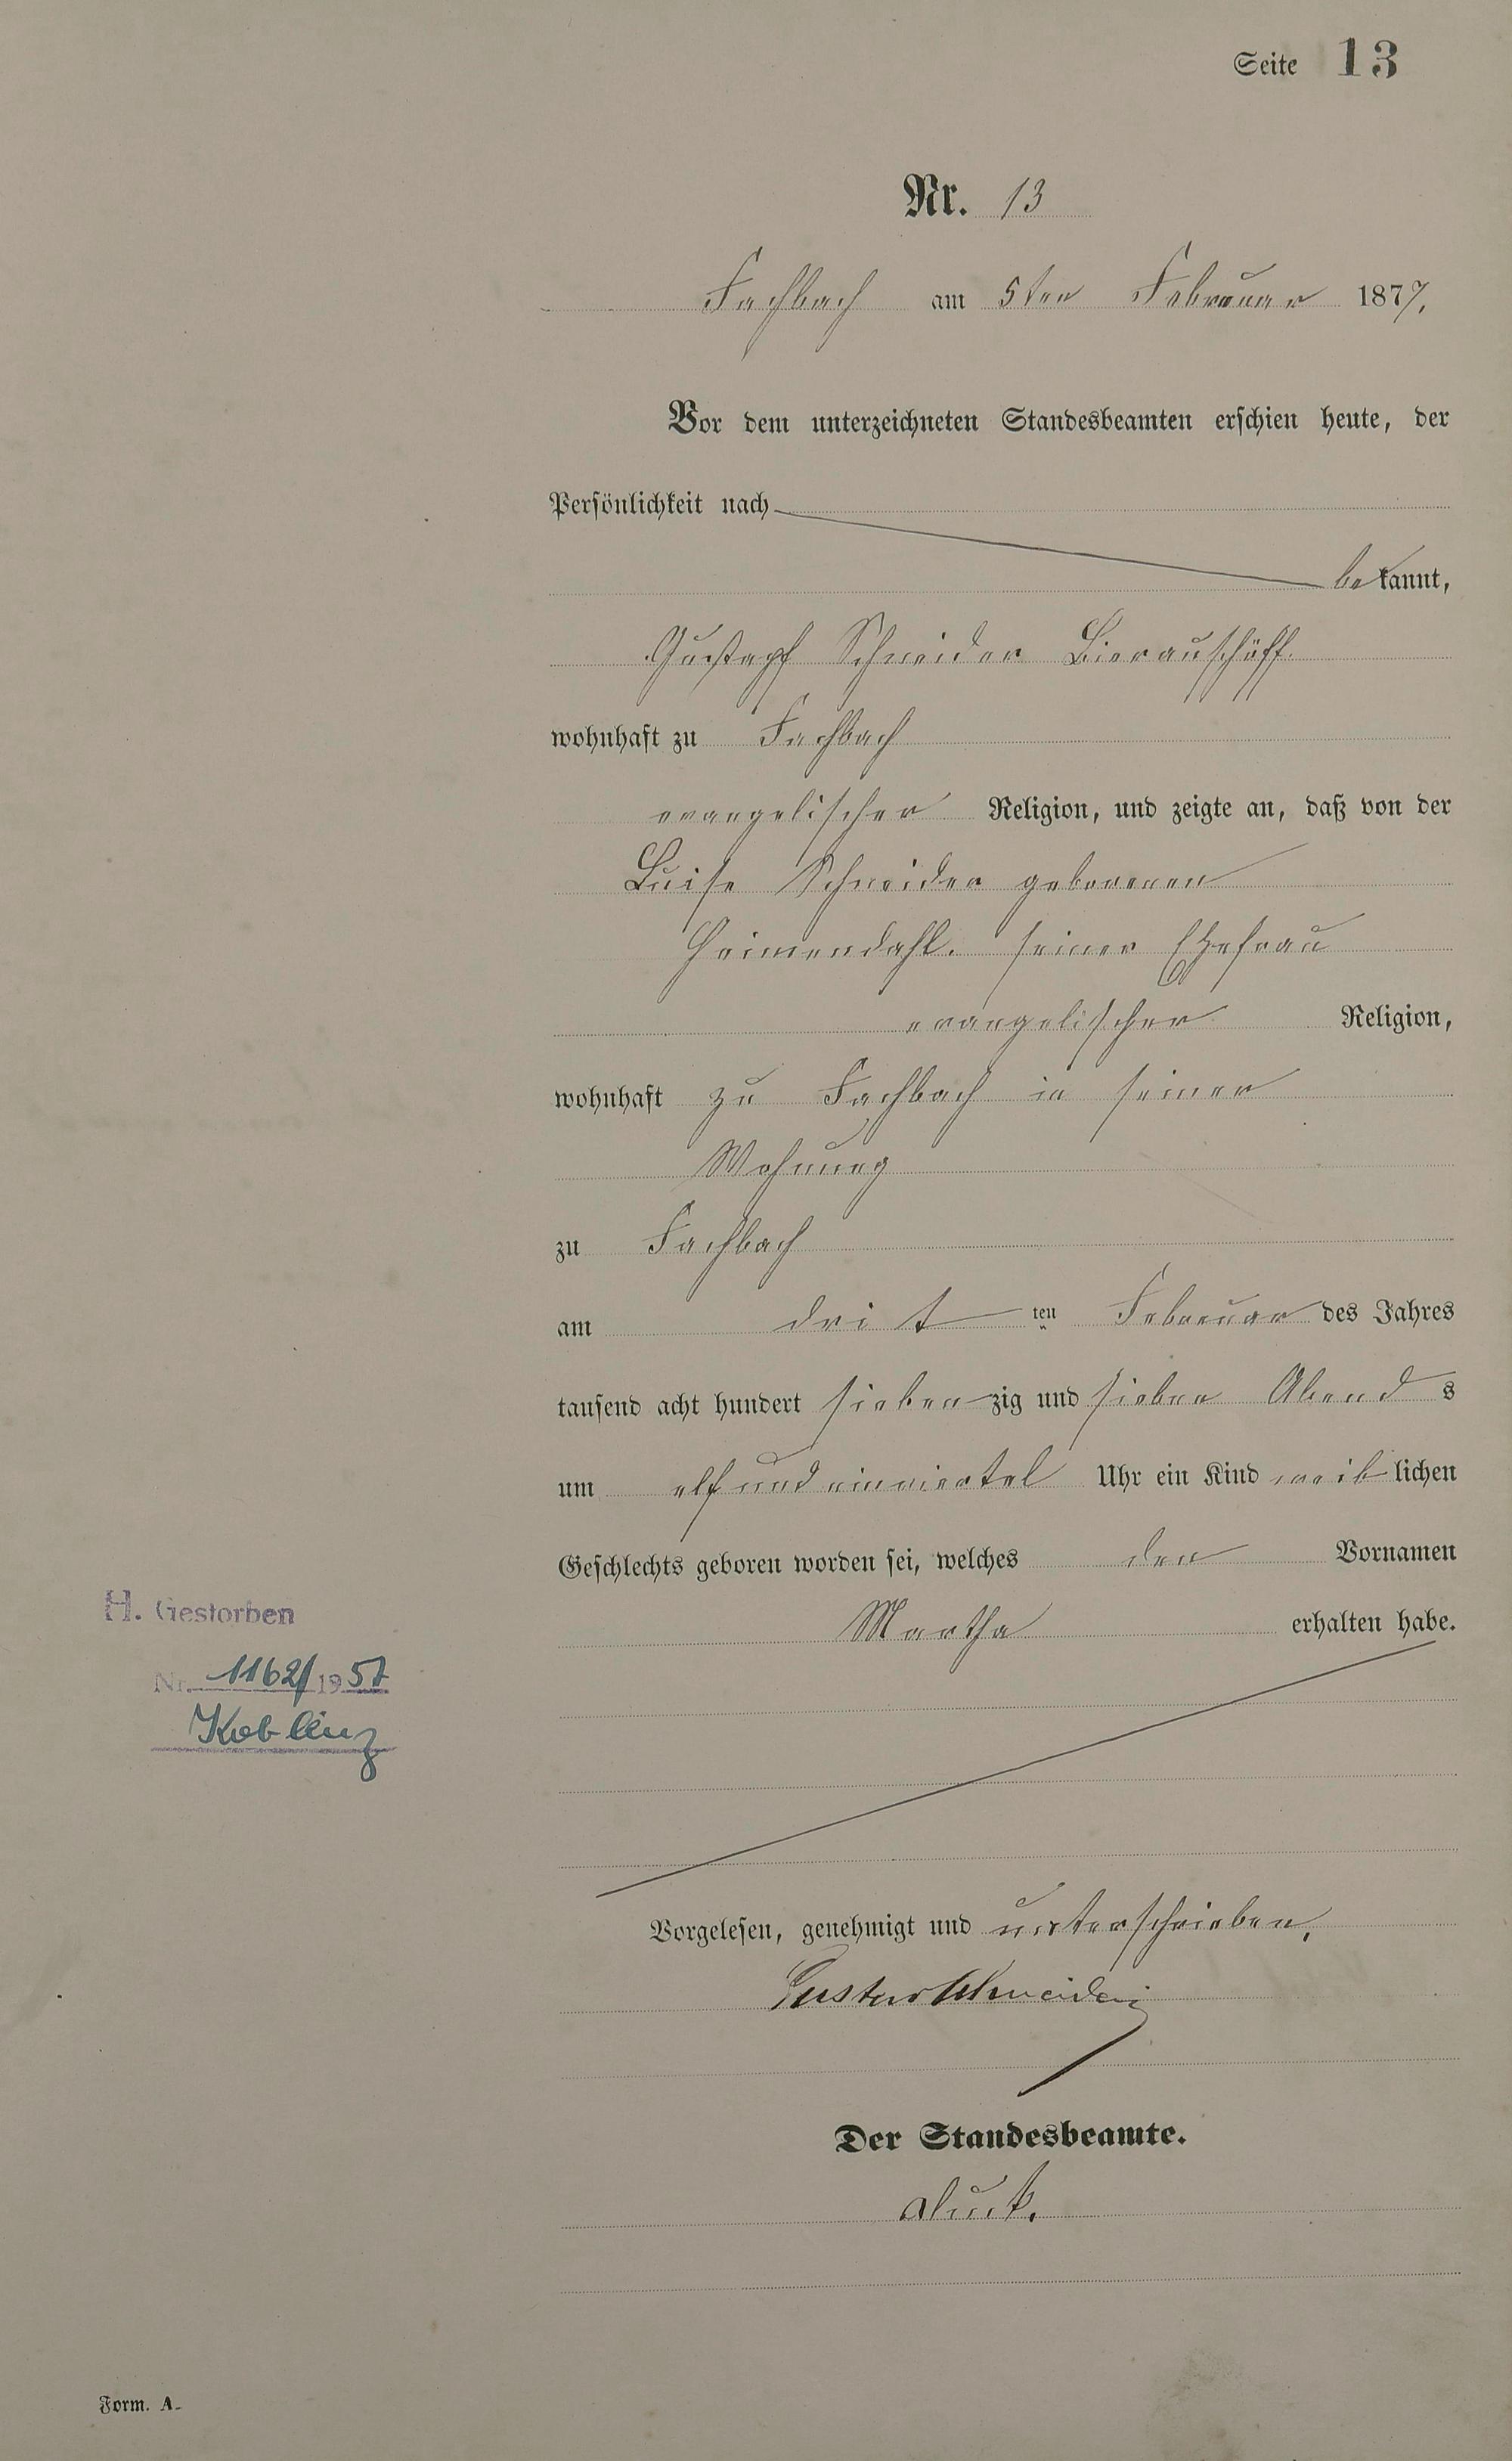 Seite 13
Nr. 13
Fachbach am 5ten Februar 1877.
Vor dem unterzeichneten Standesbeamten erschien heute, der
Persönlichkeit nach
bekannt,
Gustapf Schneider Bierauschöff.
wohnhaft zu Fachbach
evangelischer Religion, und zeigte an, daß von der
Luise Schneider geborenen
Heimendahl. seiner Ehefrau
evangelischer Religion,
wohnhaft zu Fachbach in seiner
Wohnung
zu Fachbach
am drit ten Februar des Jahres
tausend acht hundert siebenzig und sieben Abends
um elf und einviertel Uhr ein Kind weiblichen
Geschlechts geboren worden sei, welches den Vornamen
Martha erhalten habe.
H. Gestorben
Nr. 1162/1957
Koblenz
Vorgelesen, genehmigt und unterschrieben.
Gustav Schneider
Der Standesbeamte.
Form. A.